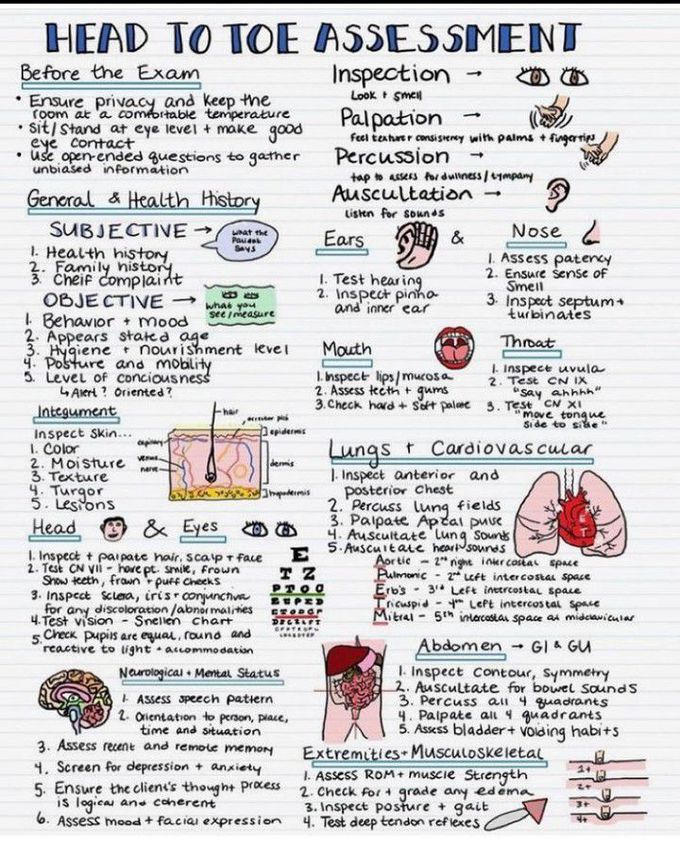 HEAD TO TOE ASSESSMENT
Before the Exam
• Ensure privacy and keep the
room at a comfortable temperature
• Sit/Stand at eye level + make good
eye contact
• use open-ended questions to gather
unbiased information
Inspection →
Look + smell
Palpation →
feel texture + consistency with palms + fingertips
Percussion →
tap to assess for dullness/tympany
Auscultation →
Listen for sounds
General & Health History
SUBJECTIVE →
what the
Patient
Says
1. Health history
2. Family history
3. Cheif complaint
OBJECTIVE →
what you
see/measure
1. Behavior + mood
2. Appears stated age
3. Hygiene + nourishment level
4. Posture and mobility
5. Level of conciousness
↳ Alert? Oriented?
Ears
&
Nose
1. Test hearing
2. Inspect pinna
and inner ear
1. Assess patency
2. Ensure sense of
Smell
3. Inspect septum +
turbinates
Mouth
1. Inspect lips/mucosa
2. Assess teeth + gums
3. Check hard + soft palate
Throat
1. Inspect uvula
2. Test CN IX
"Say ahhhh"
3. Test CN XI
"move tongue
side to side"
Integument
Inspect Skin...
1. Color
2. Moisture
3. Texture
4. Turgor
5. Lesions
hair
epidermis
dermis
hypodermis
nerve
Lungs + Cardiovascular
1. Inspect anterior and
posterior chest
2. Percuss lung fields
3. Palpate Apical pulse
4. Auscultate lung sounds
5. Auscultate heart sounds
Aortic - 2nd right intercostal space
Pulmonic - 2nd Left intercostal space
Erb's - 3rd Left intercostal space
Tricuspid - 4th Left intercostal space
Mitral - 5th intercostal space at midclavicular
Head
&
Eyes
1. Inspect + palpate hair, scalp + face
2. Test CN VII - have pt. smile, frown
Show teeth, frown + puff cheeks
3. Inspect Sclera, iris + conjunctiva
for any discoloration/abnormalities
4. Test vision - Snellen chart
5. Check pupils are equal, round and
reactive to light + accommodation
E
T Z
Abdomen → GI & GU
1. Inspect contour, symmetry
2. Auscultate for bowel sounds
3. Percuss all 4 quadrants
4. Palpate all 4 quadrants
5. Assess bladder + voiding habits
Neurological + Mental Status
1. Assess speech pattern
2. Orientation to person, place,
time and situation
3. Assess recent and remote memory
4. Screen for depression + anxiety
5. Ensure the client's thought process
is logical and coherent
6. Assess mood + facial expression
Extremities + Musculoskeletal
1. Assess ROM + muscle strength
2. Check for + grade any edema
3. Inspect posture + gait
4. Test deep tendon reflexes
1+
2+
3+
4+